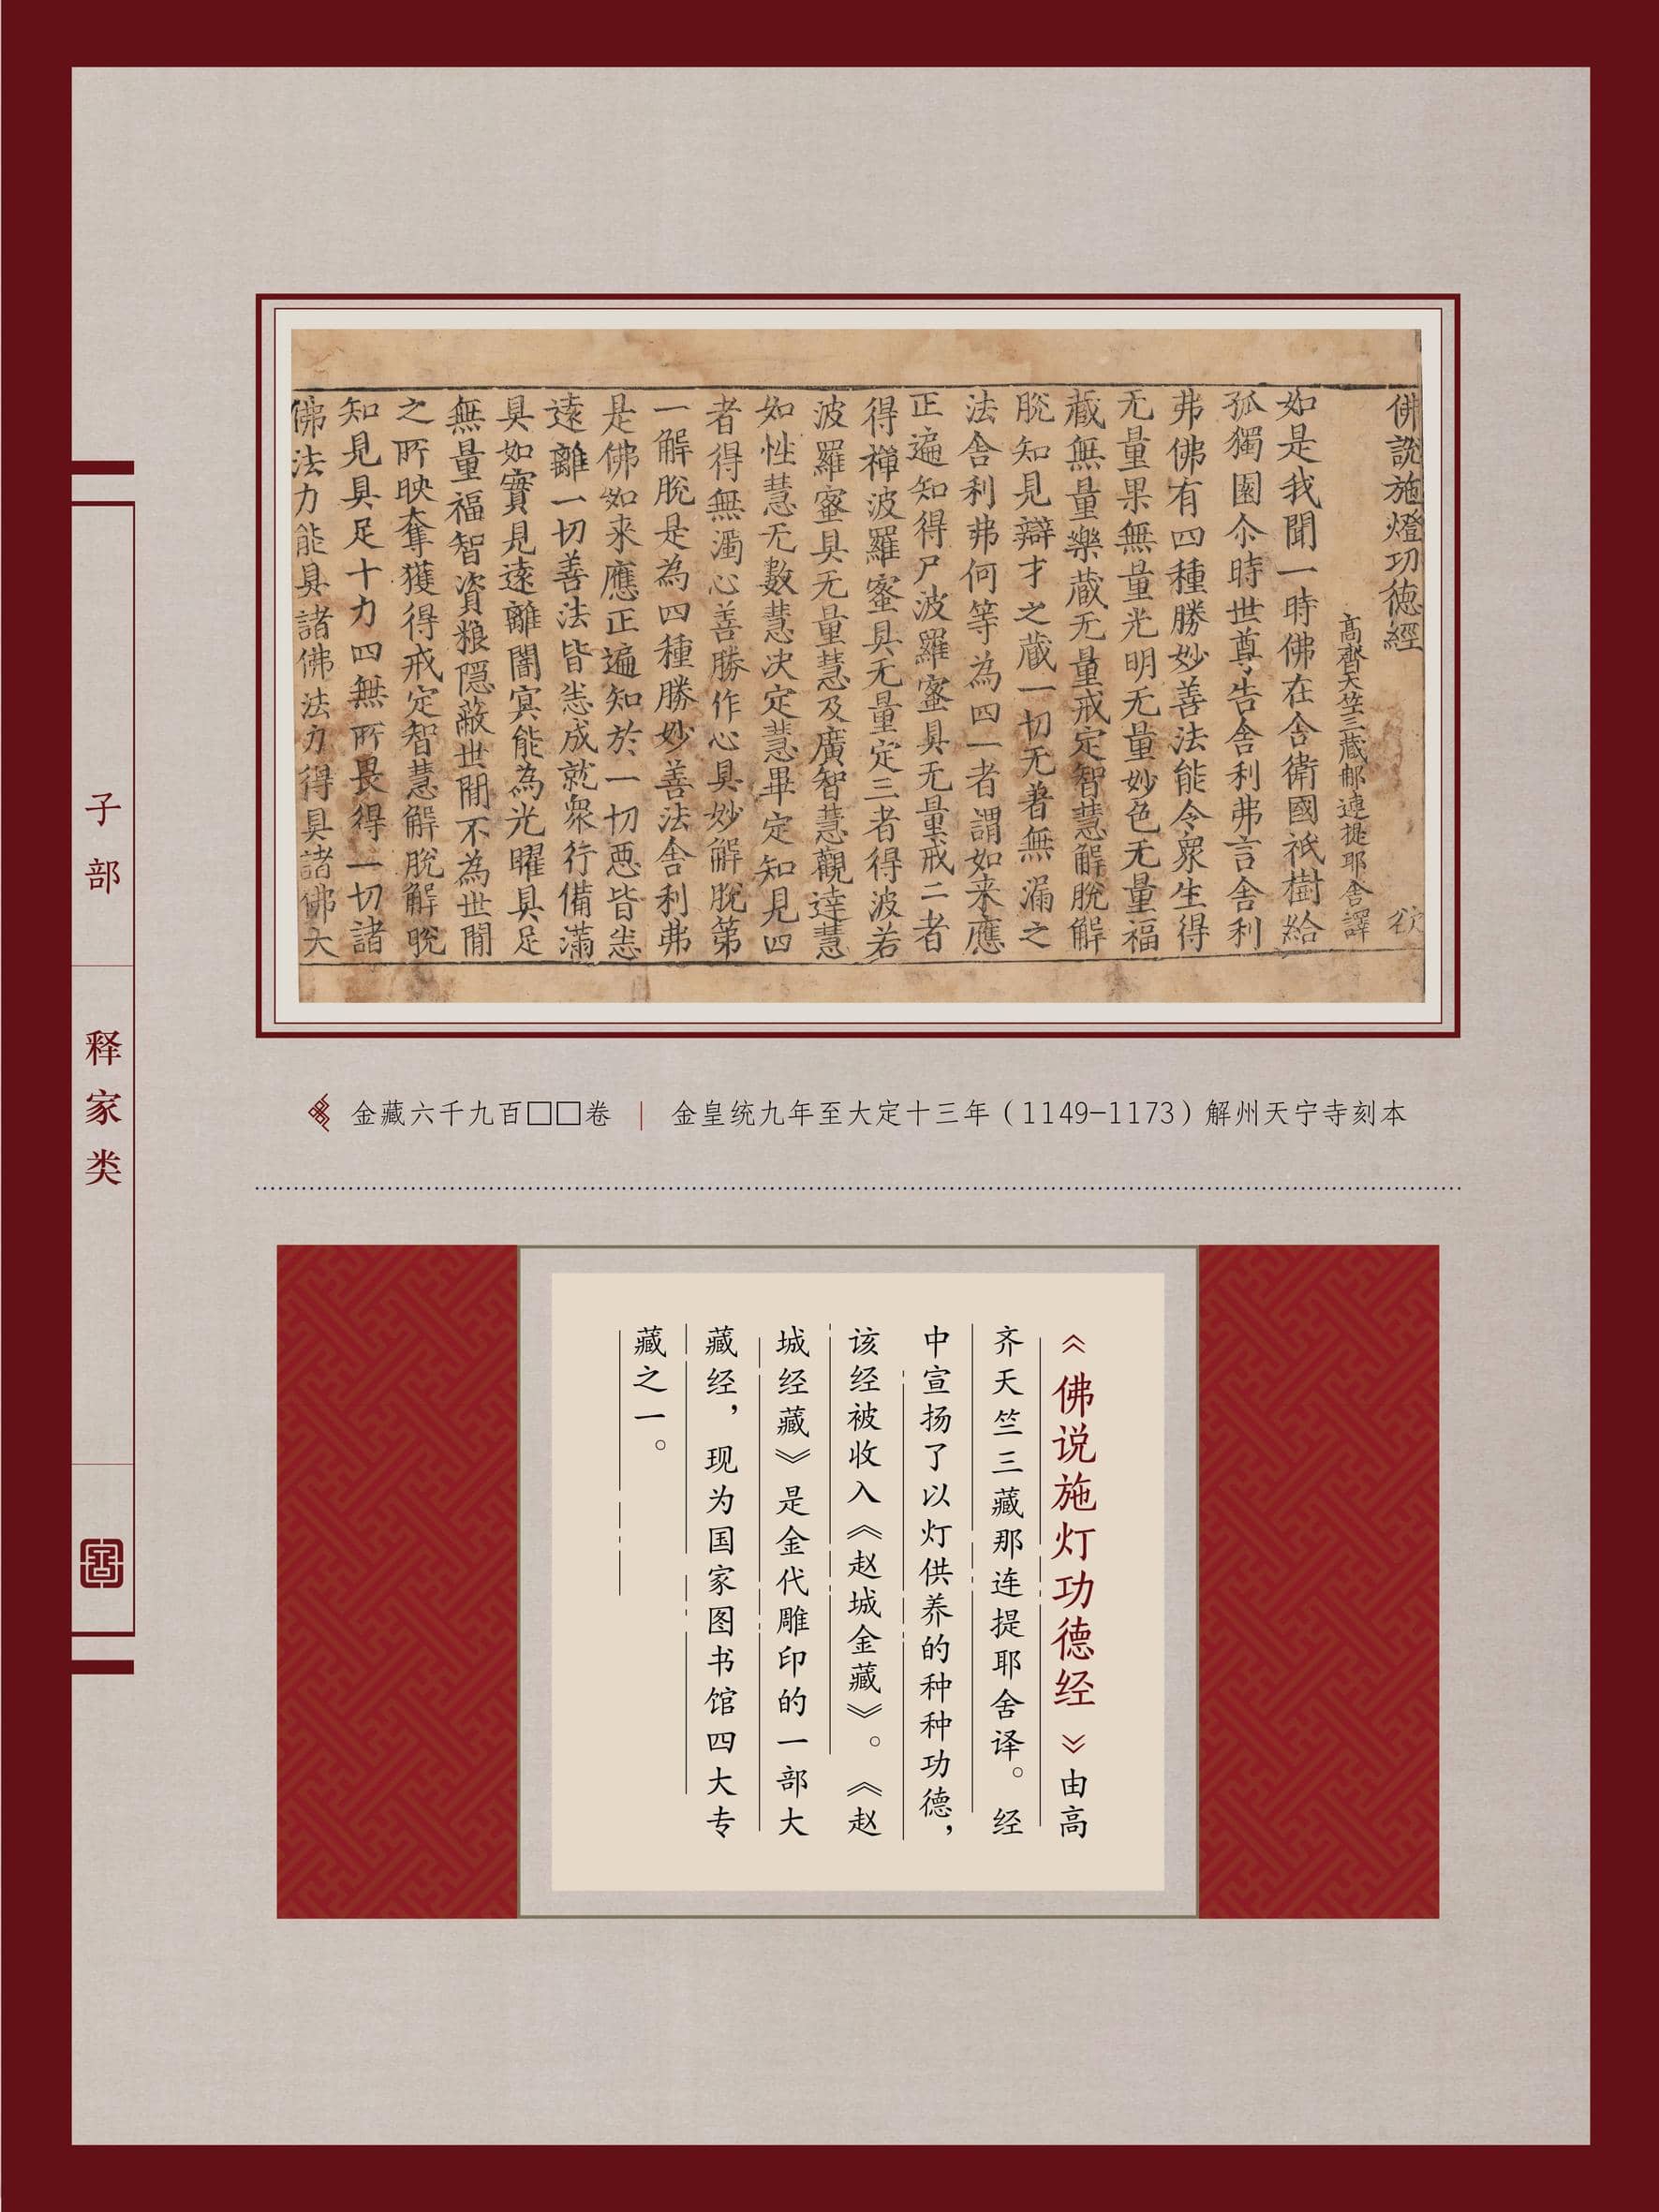 佛說施燈功德經 欲
高齊天竺三藏郍連提耶舍譯
如是我聞一時佛在舍衛國祇樹給
孤獨園尒時世尊告舍利弗言舍利
弗佛有四種勝妙善法能令衆生得
无量果無量光明无量妙色无量福
藏無量樂藏无量戒定智慧解脫解
脫知見辯才之藏一切无著無漏之
法舍利弗何等為四一者謂如来應
正遍知得尸波羅蜜具无量戒二者
得禪波羅蜜具无量定三者得波若
波羅蜜具无量慧及廣智慧觀達慧
如性慧无數慧决定慧畢定知見四
者得無濁心善勝作心具妙解脫第
一解脫是為四種勝妙善法舍利弗
是佛如来應正遍知於一切惡皆悉
遠離一切善法皆悉成就衆行備滿
具如實見遠離闇冥能為光曜具足
無量福智資粮隱蔽世間不為世間
之所映奪獲得戒定智慧解脫解脫
知見具足十力四無所畏得一切諸
佛法力能具諸佛法力得具諸佛大
金藏六千九百□□卷 | 金皇统九年至大定十三年（1149-1173）解州天宁寺刻本
子部
释家类
《佛说施灯功德经》由高
齐天竺三藏那连提耶舍译。经
中宣扬了以灯供养的种种功德，
该经被收入《赵城金藏》。《赵
城经藏》是金代雕印的一部大
藏经，现为国家图书馆四大专
藏之一。